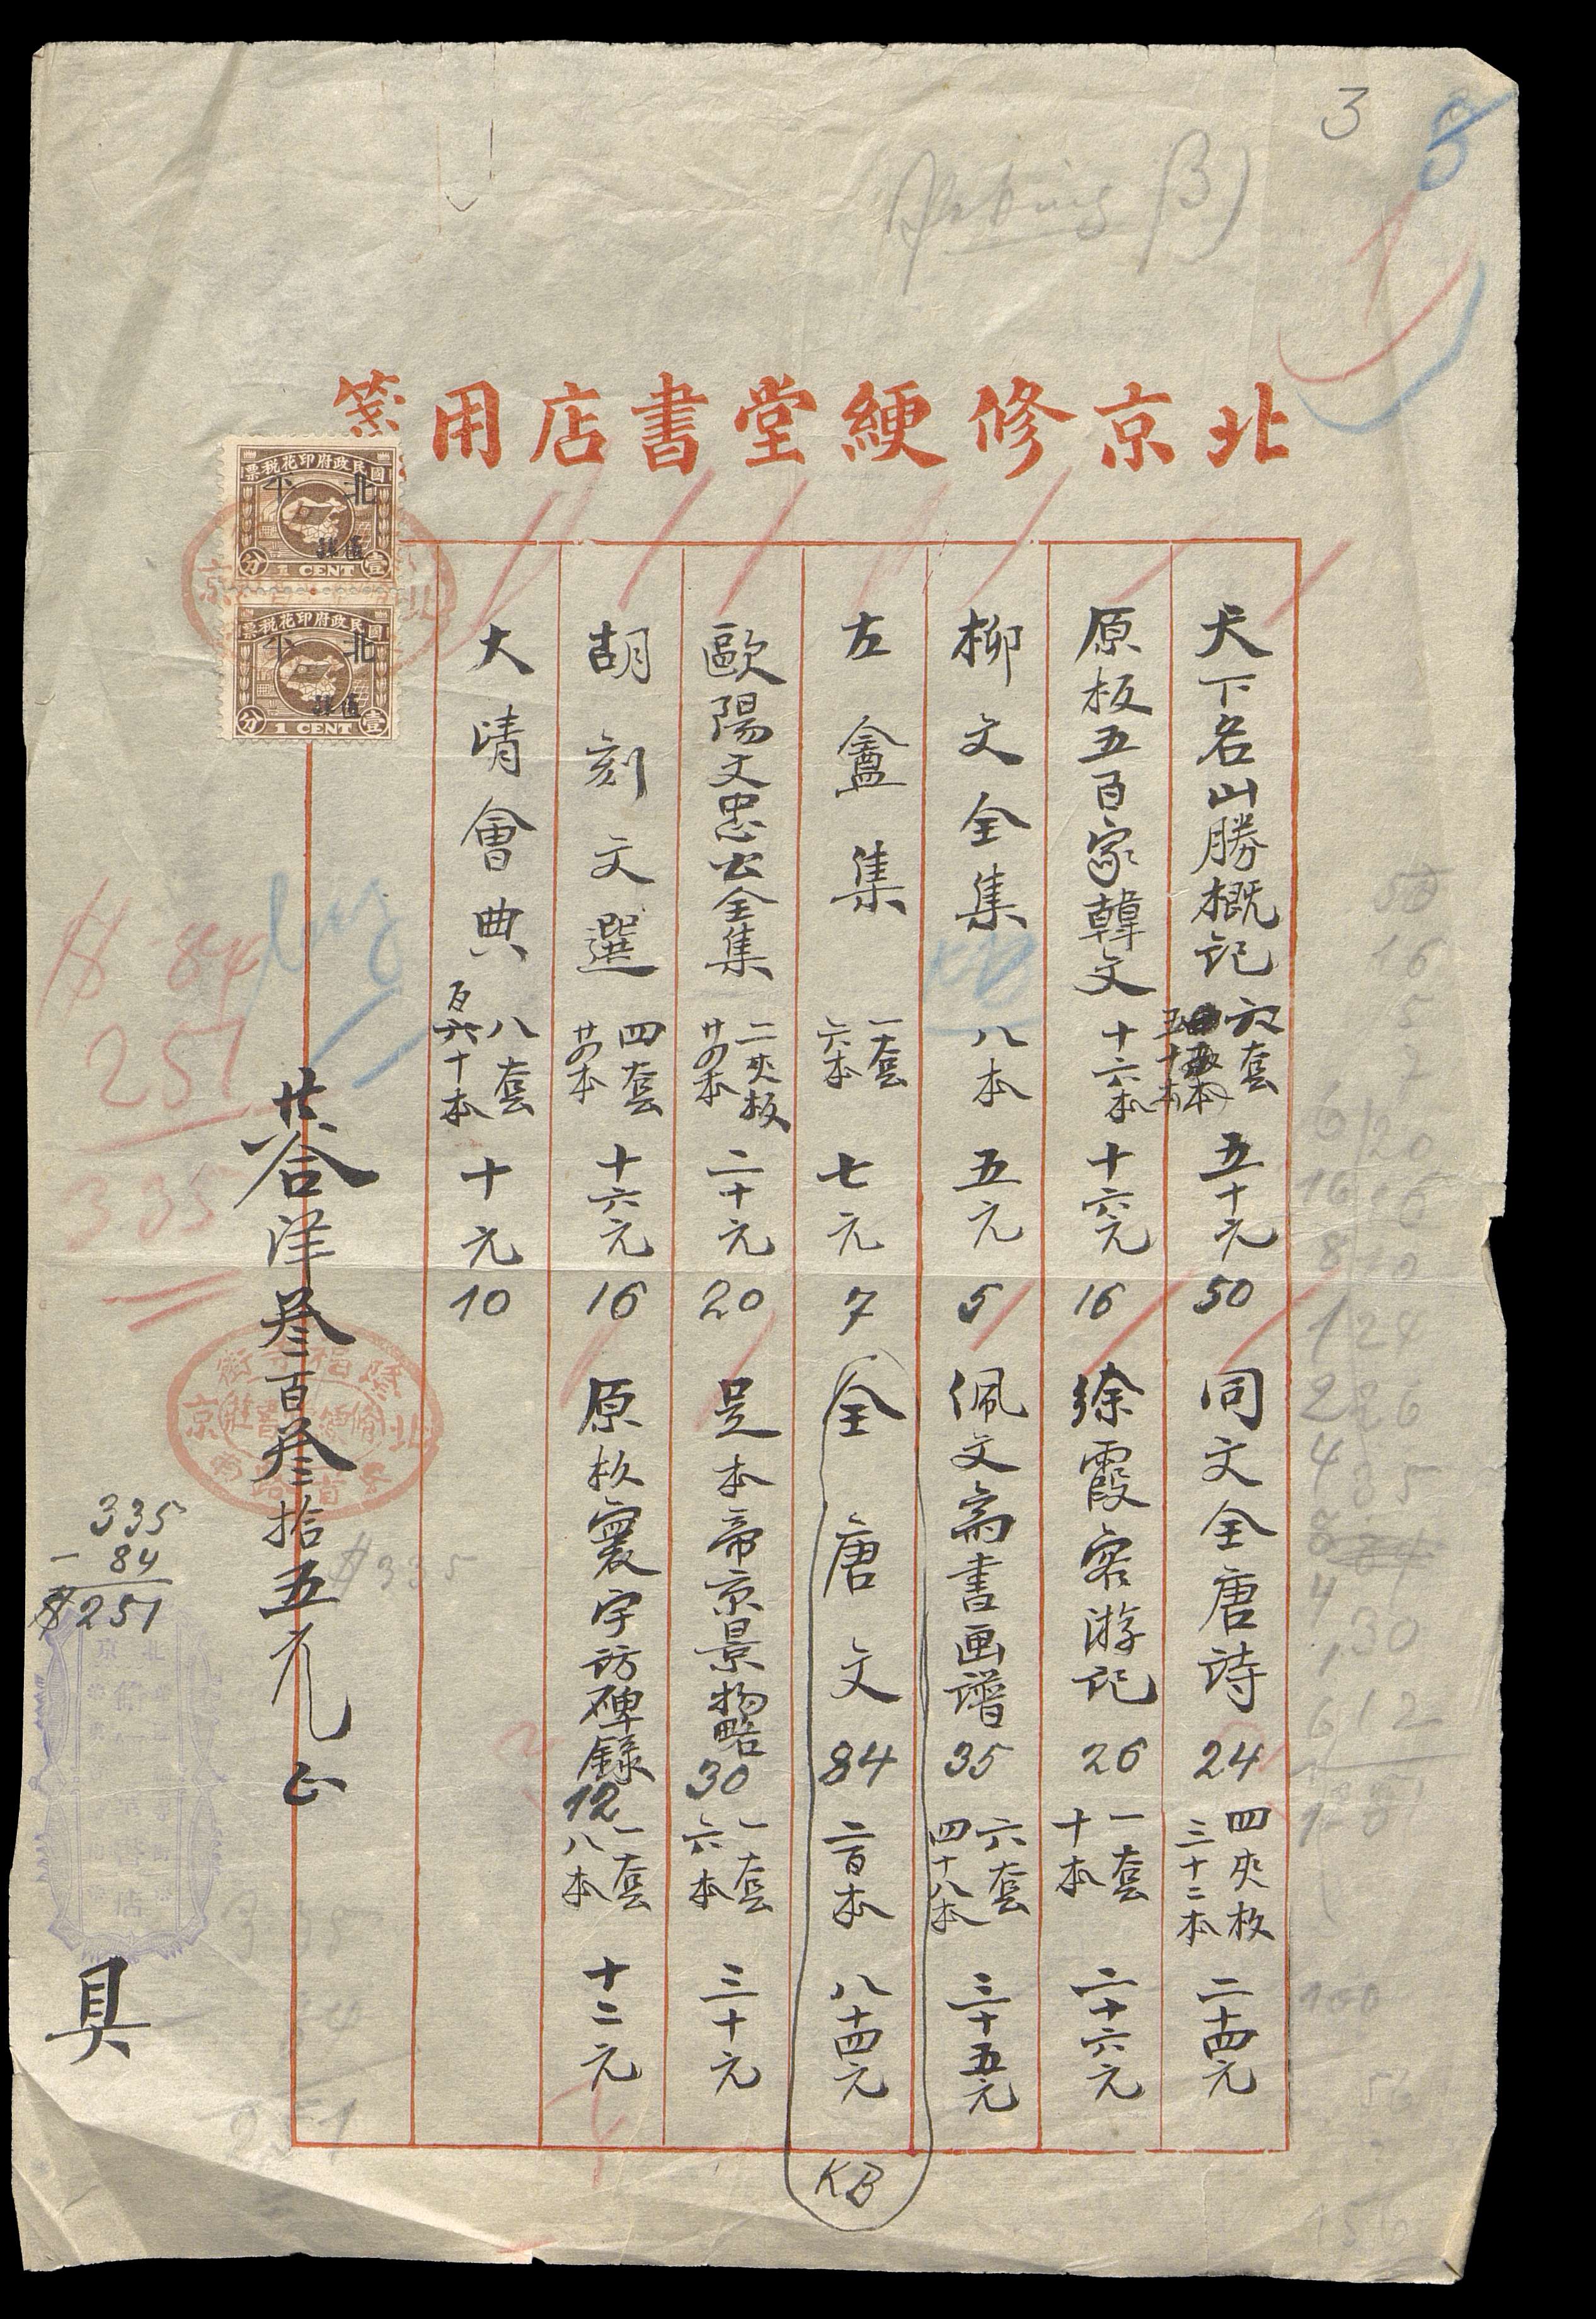 3
Peking B)
北京修綆堂書店用箋
天下名山勝概記 六套 五十本 五十元 50
原板五百家韓文 十六本 十六元 16
柳文全集 八本 五元 5
古盦集 一套 六本 七元 7
歐陽文忠公全集 二夾板 廿四本 二十元 20
胡刻文選 四套 廿四本 十六元 16
大清會典 八套 百六十本 十元 10
同文全唐詩 24 四夾板 三十二本 二十四元
徐霞客游記 26 一套 十本 二十六元
佩文齋書画譜 35 六套 四十八本 三十五元
全唐文 84 二百本 八十四元
KB
足本帝京景物略 30 一套 六本 三十元
原板寰宇訪碑錄 12 一套 八本 十二元
共合洋叁百叁拾五元正
具
國民政府印花稅票
北平
壹分
1 CENT
國民政府印花稅票
北平
壹分
1 CENT
隆福寺街
北京
$ 84
251
335
335
- 84
$251
$335
251